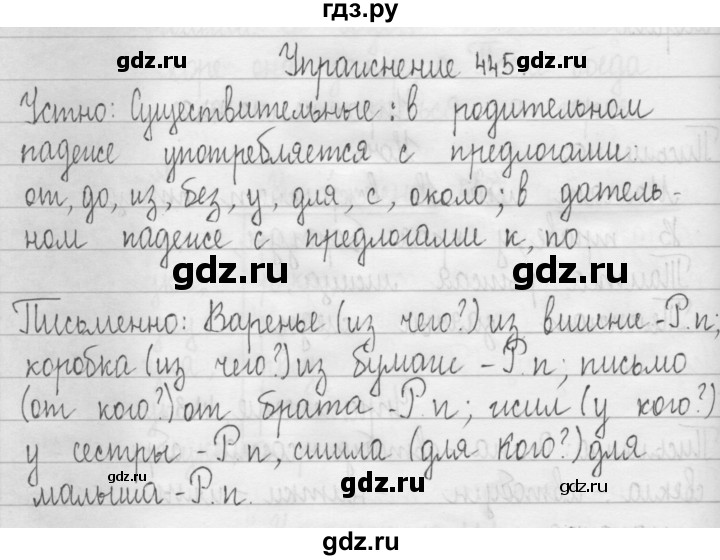 гдз.ру
Упражнение 445.
Устно: Существительные: в родительном
падеже употребляется с предлогами:
от, до, из, без, у, для, с, около; в датель-
ном падеже с предлогами к, по
Письменно: Варенье (из чего?) из вишни - Р.п;
коробка (из чего?) из бумаги - Р.п; письмо
(от кого?) от брата - Р.п; жил (у кого?)
у сестры - Р.п, сшила (для кого?) для
малыша - Р.п.
gdz.ru
gdz.ru
gdz.ru
gdz.ru
gdz.ru
gdz.ru
gdz.ru
gdz.ru
gdz.ru